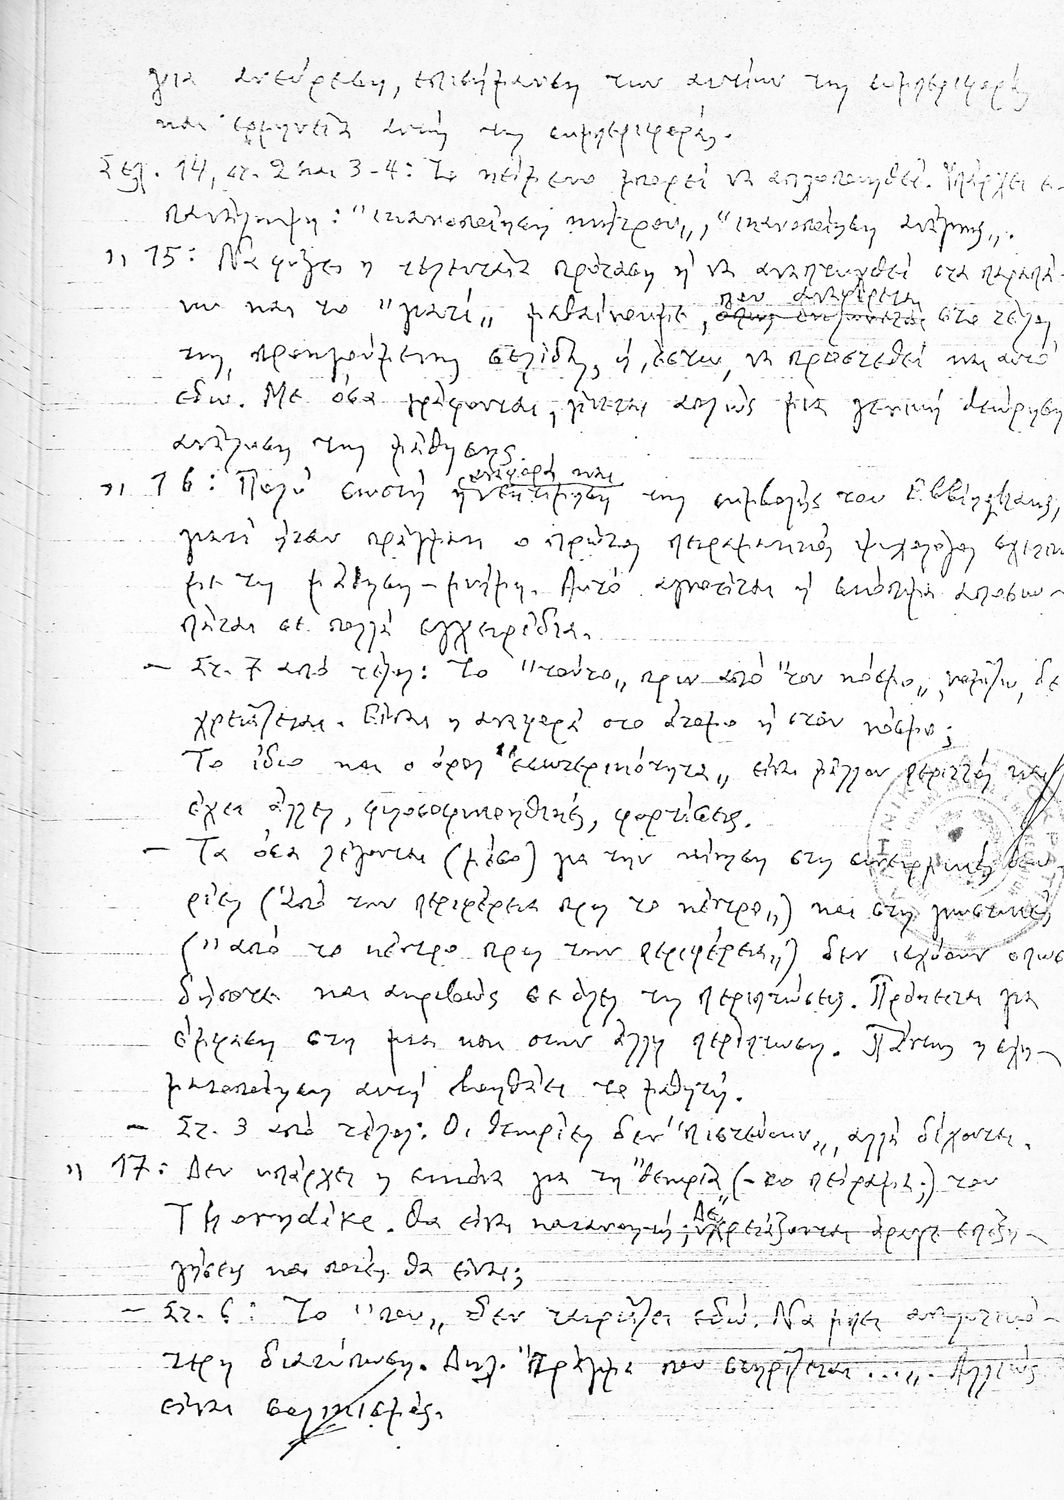 για ανεύρεση, επισήμανση των αιτίων της συμπεριφοράς
και ερμηνεία αυτή της συμπεριφοράς.
Σελ. 14, στ. 2 και 3-4: Το κείμενο μπορεί να απλοποιηθεί. Υπάρχει ε-
πανάληψη: "ικανοποίηση κινήτρου", "ικανοποίηση ανάγκης".
" 15: Να φύγει η τελευταία πρόταση ή να αναπτυχθεί στα παραπά-
νω και το "γιατί" μαθαίνουμε, που αναφέρεται στο τέλος
της προηγούμενης σελίδας, ή, έστω, να προστεθεί και αυτό
εδώ. Με όσα γράφονται, γίνεται απλώς μια γενική θεώρηση
ανάλυση της μάθησης.
" 16: Πολύ σωστή η αναφορά και εκτίμηση της συμβολής του Ebbinghaus,
γιατί ήταν πράγματι ο πρώτος πειραματικός ψυχολόγος σχετικά
με τη μάθηση - μνήμη. Αυτό αγνοείται ή σκόπιμα αποσιω-
πάται σε πολλά εγχειρίδια.
- Στ. 7 από τέλος: Το "τούτο" πριν από "τον κόσμο", νομίζω, δε
χρειάζεται. Είναι η αναφορά στο άτομο ή στον κόσμο;
Το ίδιο και ο όρος "εσωτερικότητα" είναι μάλλον περιττός και
έχει άλλες, φιλοσοφικοηθικές, φορτίσεις.
- Τα όσα λέγονται (μέσο) για την κίνηση στις συνειρμικές θεω-
ρίες ("από την περιφέρεια προς το κέντρο") και στις γνωστικές
("από το κέντρο προς την περιφέρεια") δεν ισχύουν οπωσ-
δήποτε και ακριβώς σε όλες τις περιπτώσεις. Πρόκειται για
έμφαση στη μια και στην άλλη περίπτωση. Πάντως η σχη-
ματοποίηση αυτή βοηθάει το μαθητή.
- Στ. 3 από τέλος: Οι θεωρίες δεν "πιστεύουν", αλλά δέχονται.
" 17: Δεν υπάρχει η εικόνα για τη "θεωρία" (- το πείραμα;) του
Thorndike. Θα είναι κατανοητή; Δε χρειάζονται άραγε επεξη-
γήσεις και ποιες θα είναι;
- Στ. 6: Το "που" δεν ταιριάζει εδώ. Να μπει αναλυτικό-
τερη διατύπωση. Δηλ. "Πράγμα που στηρίζεται ...". Αλλιώς
είναι σολοικισμός.